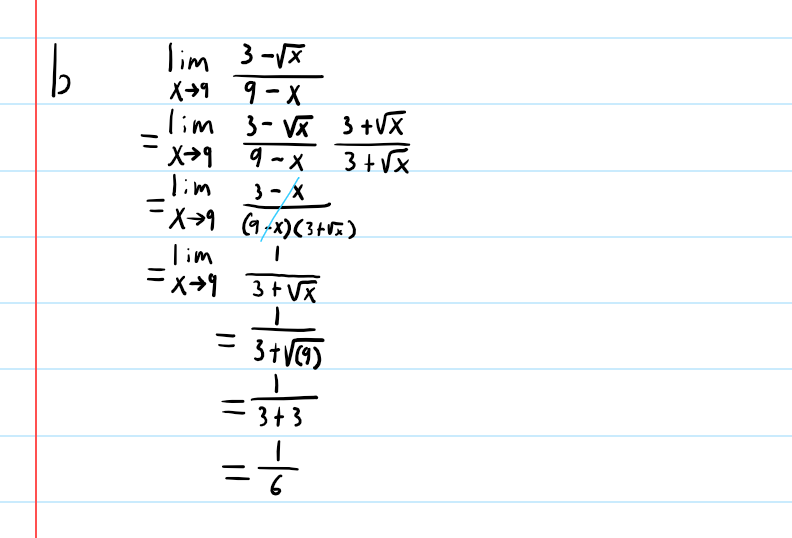 b lim x→9 (3-√x)/(9-x)
= lim x→9 (3-√x)/(9-x) (3+√x)/(3+√x)
= lim x→9 (3-x)/((9-x)(3+√x))
= lim x→9 1/(3+√x)
= 1/(3+√(9))
= 1/(3+3)
= 1/6